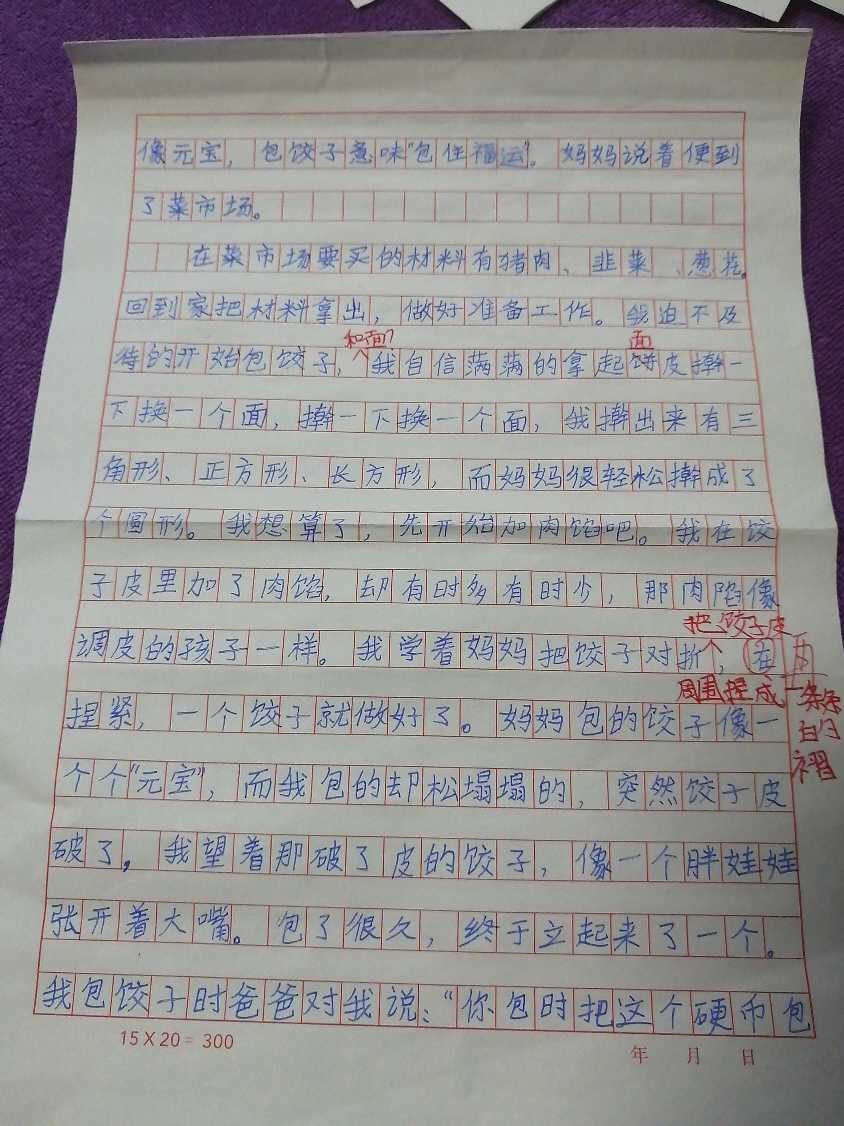 像元宝，包饺子意味“包住福运”。妈妈说着便到
了菜市场。
在菜市场要买的材料有猪肉、韭菜、葱花。
回到家把材料拿出，做好准备工作。我迫不及
和面？
面
待的开始包饺子，我自信满满的拿起饼皮擀一
下换一个面，擀一下换一个面，我擀出来有三
角形、正方形、长方形，而妈妈很轻松擀成了
个圆形。我想算了，先开始加肉馅吧。我在饺
子皮里加了肉馅，却有时多有时少，那肉陷像
把饺子皮
调皮的孩子一样。我学着妈妈把饺子对折，在
周围捏成一条条
捏紧，一个饺子就做好了。妈妈包的饺子像一
白勺
褶
个个“元宝”，而我包的却松塌塌的，突然饺子皮
破了，我望着那破了皮的饺子，像一个胖娃娃
张开着大嘴。包了很久，终于立起来了一个。
我包饺子时爸爸对我说：“你包时把这个硬币包
15X20=300
年 月 日